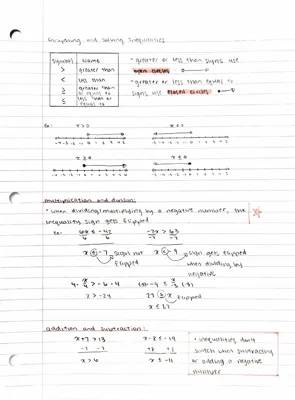 Graphing and Solving Inequalities
Symbol Name
> greater than
< less than
≥ greater than or equal to
≤ less than or equal to
• greater or less than signs use
open circles
• greater or less than equal to
signs use closed circles
Ex:
x > 0
x < 0
x ≥ 0
x ≤ 0
multiplication and division:
• when dividing/multiplying by a negative number, the
inequality sign gets flipped
Ex:
6x ≤ -42
6 6
x ≤ -7
sign not
flipped
-7x > 63
-7 -7
x < -9
sign gets flipped
when dividing by
negative
4 · x/4 > -6 · 4
x > -24
(-3) -9 ≤ x/-3 (-3)
27 ≥ x flipped
x ≤ 27
addition and subtraction:
x + 7 > 13
-7 -7
x > 6
x - 8 ≤ -19
+8 +8
x ≤ -11
• inequalities don't
switch when subtracting
or adding a negative
number